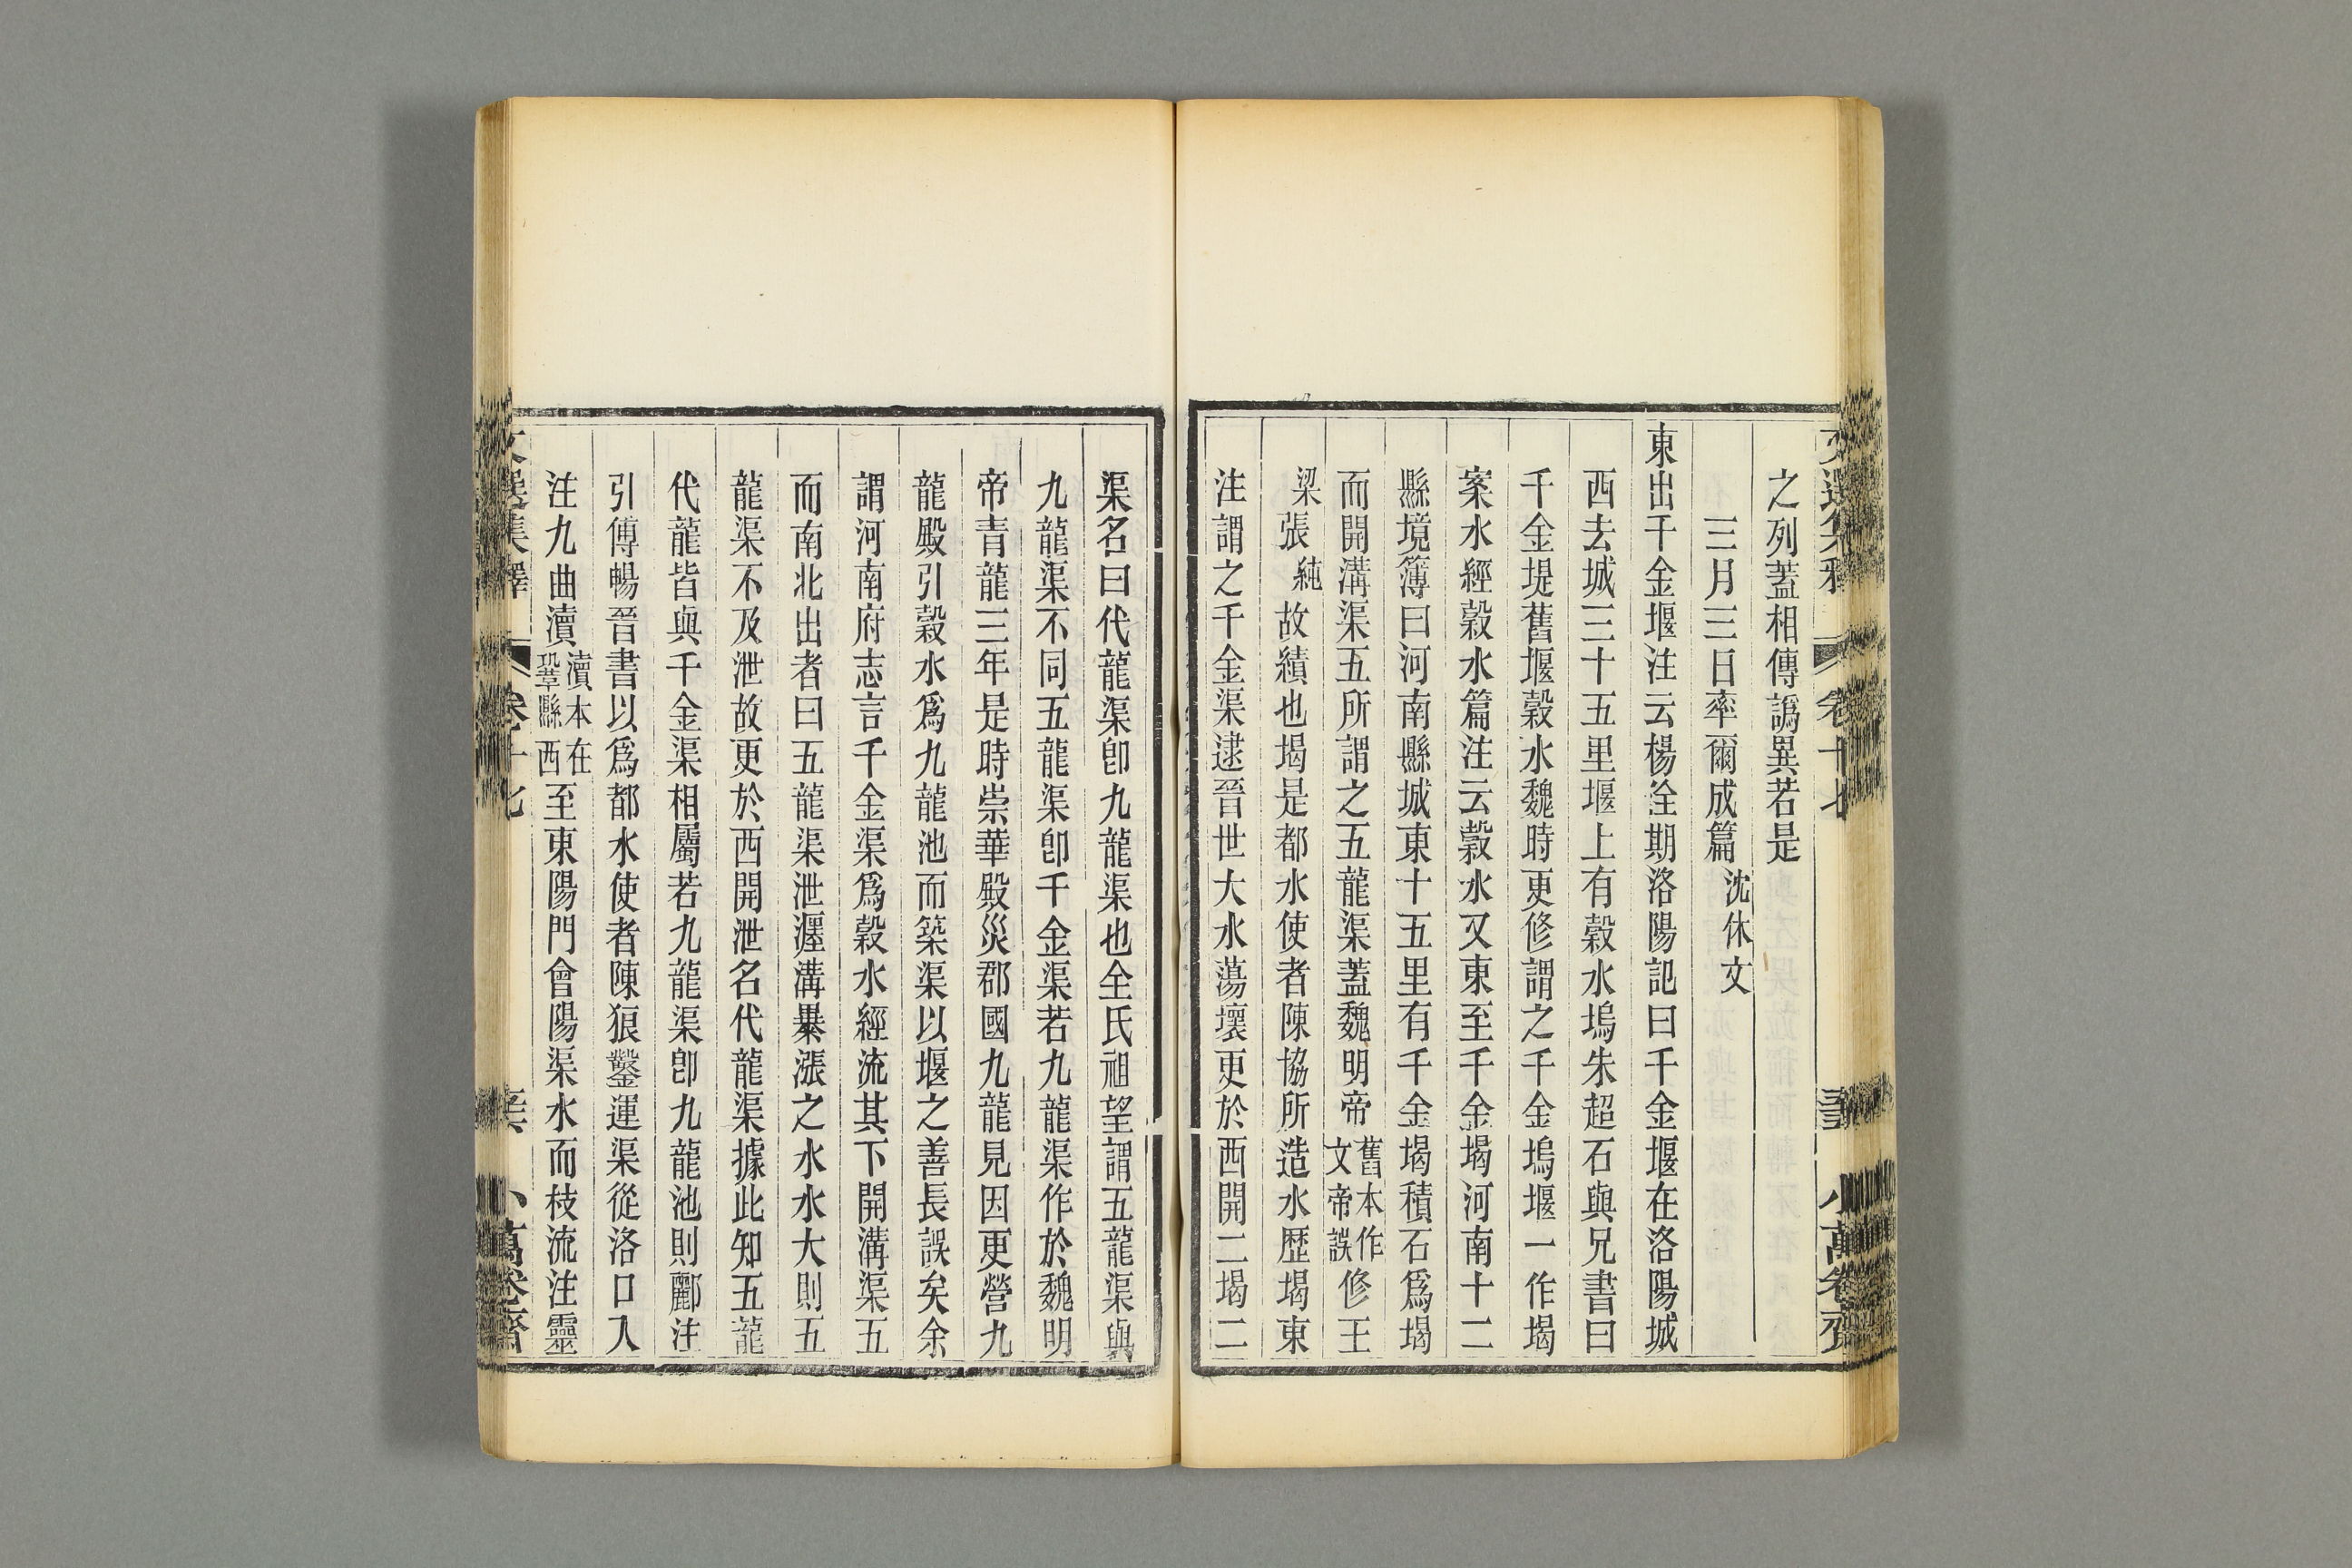 之列蓋相傳譌異若是
三月三日率爾成篇沈休文
東出千金堰注云楊佺期洛陽記曰千金堰在洛陽城
西去城三十五里堰上有穀水塢朱超石與兄書曰
千金堤舊堰穀水魏時更修謂之千金塢堰一作堨
案水經穀水篇注云穀水又東至千金堨河南十二
縣境簿曰河南縣城東十五里有千金堨積石爲堨
而開溝渠五所謂之五龍渠蓋魏明帝舊本作文帝誤修王
梁張純故績也堨是都水使者陳協所造水歷堨東
注謂之千金渠逮晉世大水蕩壞更於西開二堨二
渠名曰代龍渠卽九龍渠也全氏祖望謂五龍渠與
九龍渠不同五龍渠卽千金渠若九龍渠作於魏明
帝青龍三年是時崇華殿災郡國九龍見因更營九
龍殿引穀水爲九龍池而築渠以堰之善長誤矣余
謂河南府志言千金渠爲穀水經流其下開溝渠五
而南北出者曰五龍渠泄瀍溝暴漲之水水大則五
龍渠不及泄故更於西開泄名代龍渠據此知五龍
代龍皆與千金渠相屬若九龍渠卽九龍池則酈注
引傅暢晉書以爲都水使者陳狼鑿運渠從洛口入
注九曲瀆瀆本在鞏縣西至東陽門會陽渠水而枝流注靈